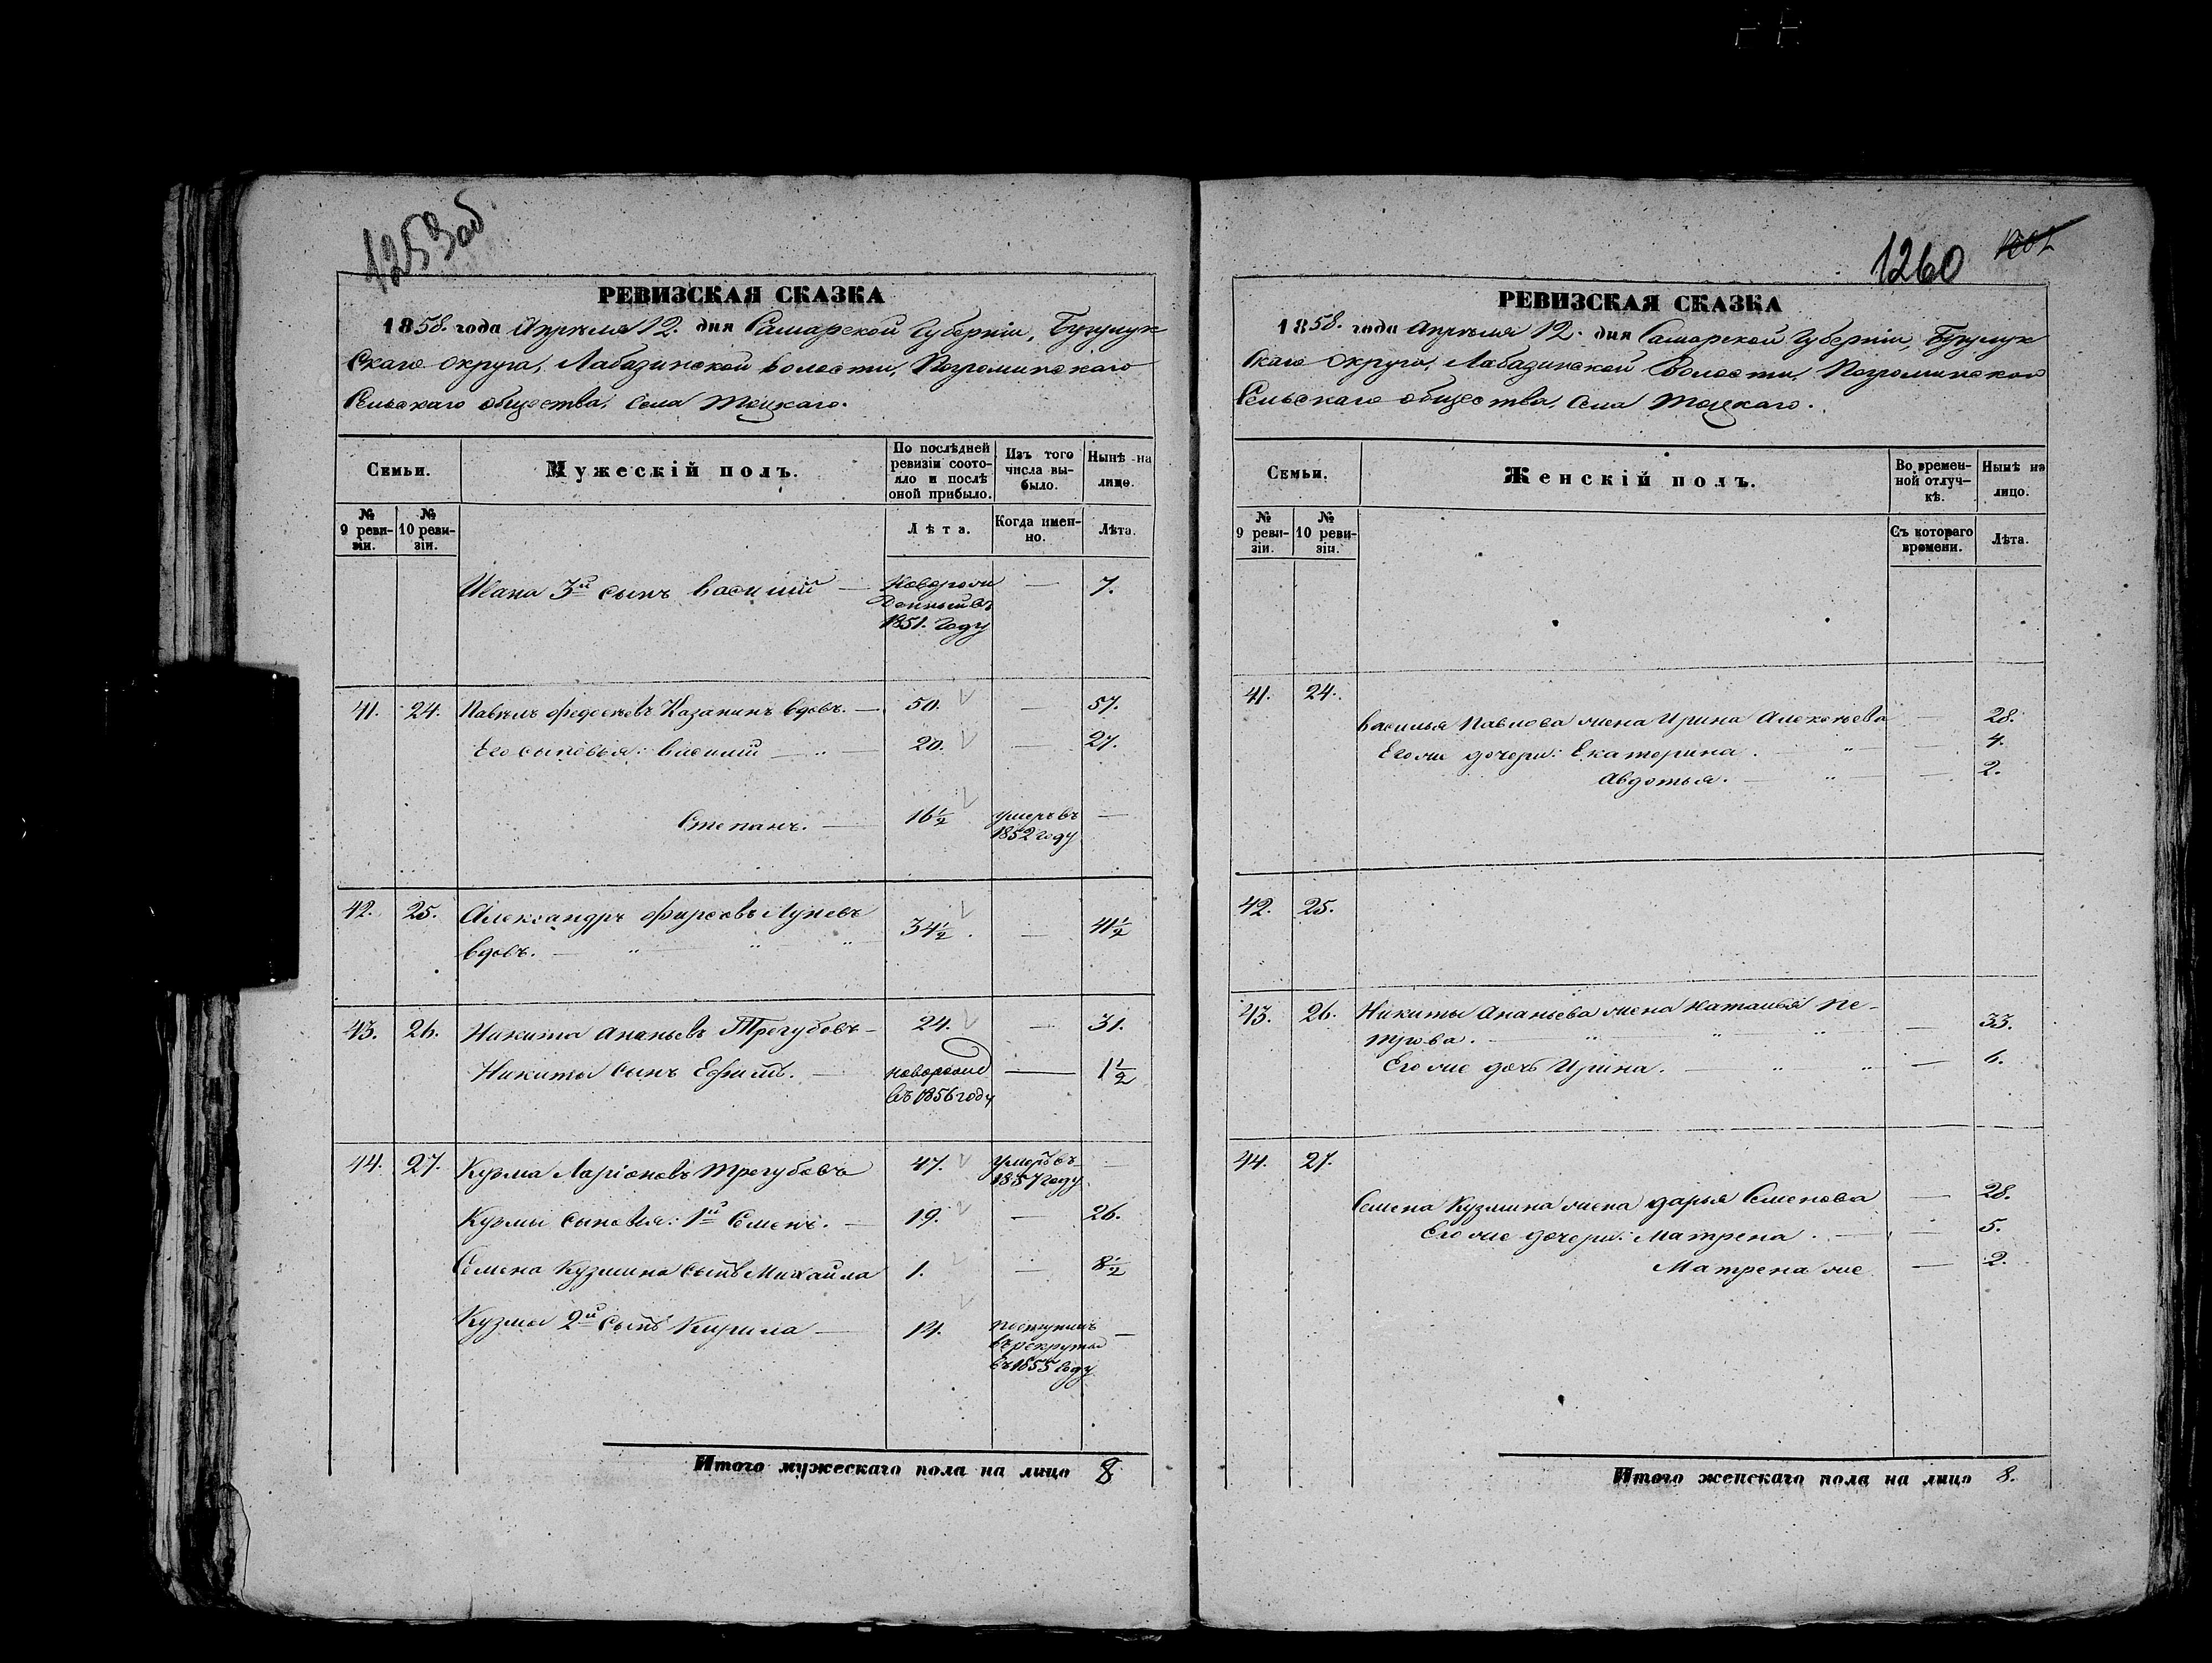 1253об
РЕВИЗСКАЯ СКАЗКА
1858. года Апрѣля 12. дня Самарской Губерніи, Бузулук
скаго округа, Лабазинской волости, Погроминскаго
Сельскаго общества, села Тоцкаго.
Семьи.
Мужескій полъ.
По послѣдней
ревизіи состо-
яло и послѣ
оной прибыло.
Изъ того
числа вы-
было.
Нынѣ на
лицо.
№
9 реви-
зіи.
№
10 реви-
зіи.
Лѣта.
Когда имен-
но.
Лѣта.
Ивана 3й сынъ Василий — Новорож
денный въ
1851. году — 7.
41. 24. Павелъ Федосѣевъ Казанинъ вдовъ. — 50. — 57.
Его сыновья: Василий — 20. — 27.
Степанъ. — 16½ умеръ въ
1852 году —
42. 25. Александръ Фирсовъ Луневъ
вдовъ. — 34½. — 41½
43. 26. Никита Ананьевъ Трегубовъ — 24. — 31.
Никиты сынъ Ефимъ. — новорожд
въ 1856 году — 1½
44. 27. Кузма Ларіоновъ Трегубовъ 47. умеръ въ
1857 году —
Кузмы сыновья: 1й Семенъ. — 19. — 26.
Семена Кузмина сынъ Михайла 1. — 8½
Кузмы 2й сынъ Кирила — 14. поступилъ
въ рекруты
въ 1855 году —
Итого мужескаго пола на лицо 8
1260
РЕВИЗСКАЯ СКАЗКА
1858. года Апрѣля 12. дня Самарской Губерніи, Бузулук
скаго Округа, Лабазинской Волости, Погроминскаго
Сельскаго общества, села Тоцкаго.
Семьи.
Женскій полъ.
Во времен-
ной отлуч-
кѣ.
Нынѣ на
лицо.
№
9 реви-
зіи.
№
10 реви-
зіи.
Съ котораго
времени.
Лѣта.
41. 24.
Василья Павлова жена Ирина Алексѣева — 28.
Его же дочери: Екатерина. — 4.
Авдотья. — 2.
42. 25.
43. 26. Никиты Ананьева жена Наталья Пе-
трова. — 33.
Его же дочь Ирина. — 6.
44. 27.
Семена Кузмина жена Дарья Семенова — 28.
Его же дочери: Матрена. — 5.
Матрена же — 2.
Итого женскаго пола на лицо 8.